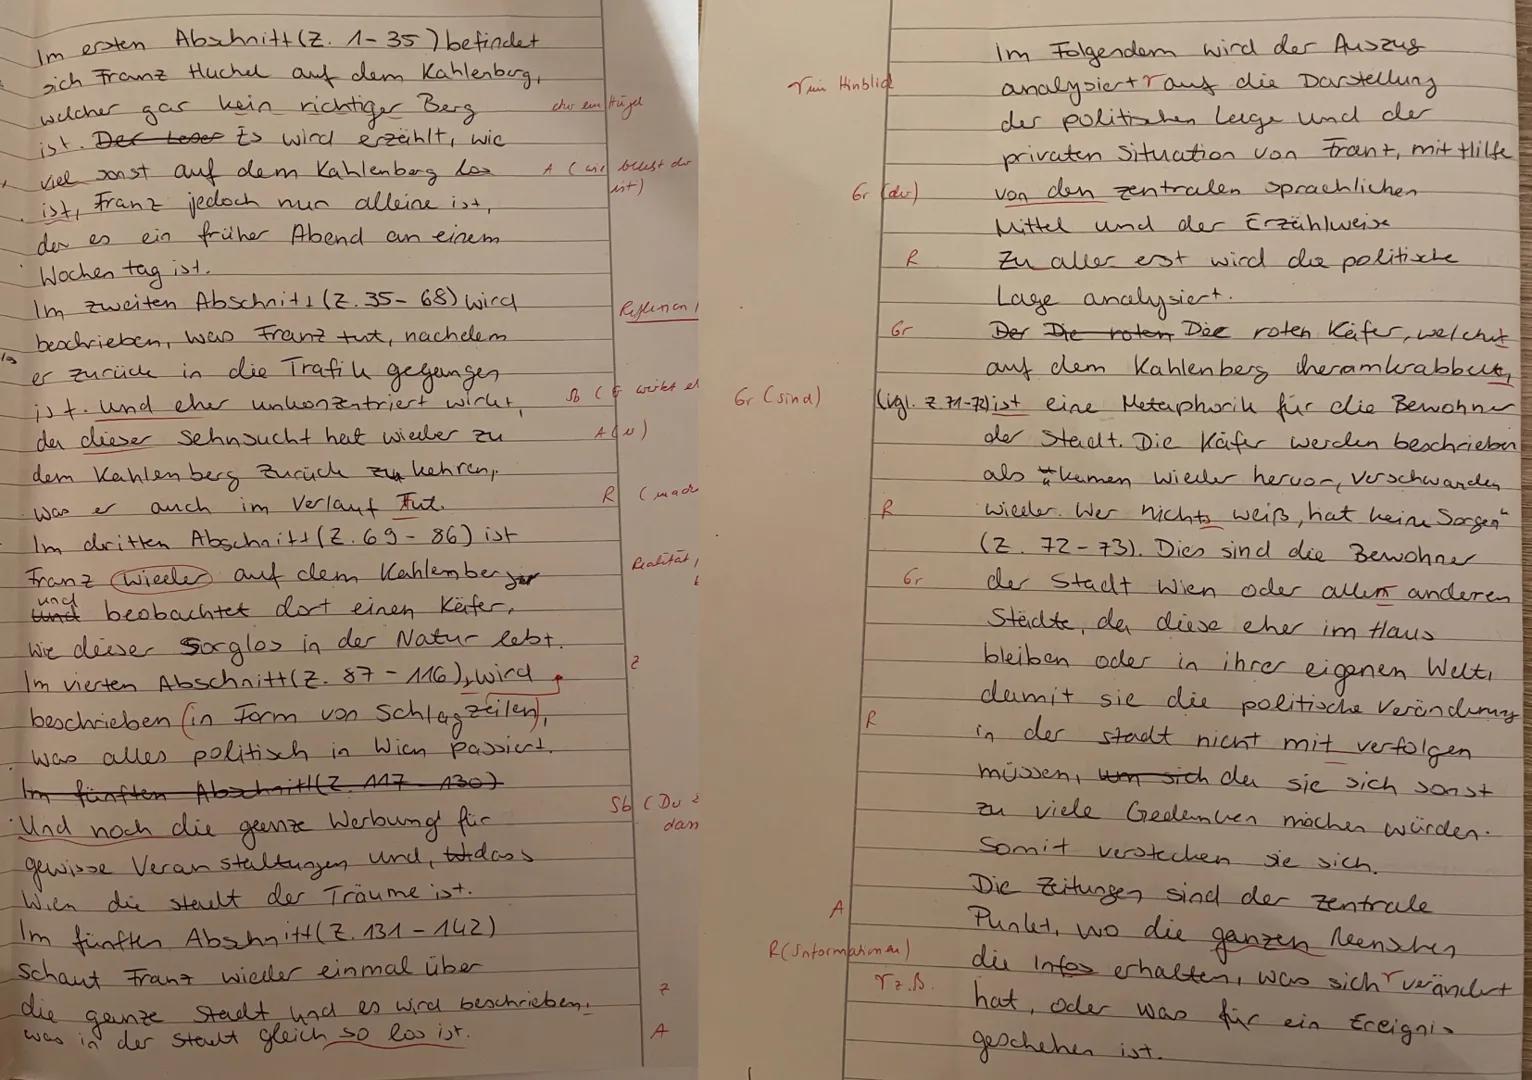 Im ersten Abschnitt (Z. 1-35) befindet
sich Franz Huchel auf dem Kahlenberg,
welcher gar kein richtiger Berg
eher ein Hügel
ist. Der Leser Es wird erzählt, wie
viel sonst auf dem Kahlenberg los
A (wie belebt der
ist)
ist, Franz jedoch nun alleine ist,
da es ein früher Abend an einem
Wochen tag ist.
Im zweiten Abschnitt (Z. 35-68) wird
Reflexion
beschrieben, was Franz tut, nachdem
er zurück in die Trafik gegangen
ist. Und eher unkonzentriert wirkt,
Sb (Er wirkt
da dieser Sehnsucht hat wieder zu
A (v)
dem Kahlenberg zurück zu kehren,
was er auch im Verlauf Tut.
R
Im dritten Abschnitt (Z. 69-86) ist
Franz wieder auf dem Kahlemberg
Realität,
und
und beobachtet dort einen Käfer,
wie dieser Sorglos in der Natur lebt.
Im vierten Abschnitt (Z. 87-116), wird
Z
beschrieben (in Form von Schlagzeilen),
was alles politisch in Wien passiert.
Im fünften Abschnitt (Z. 117-130)
Und noch die ganze Werbung für
Sb (Du
gewisse Veran staltungen und, dass
Wien die stadt der Träume ist.
Im fünften Abschnitt (Z. 131-142)
schaut Franz wieder einmal über
die ganze Stadt und es wird beschrieben,
Z
was in der Stadt gleich so los ist.
A
Im Folgendem wird der Auszug
analysiert auf die Darstellung
im Hinblick
der politischen Lage und der
privaten Situation von Franz, mit Hilfe
von den zentralen sprachlichen
Gr (der)
Mittel und der Erzählweise
Zu aller erst wird die politische
R
Lage analysiert.
Der Die roten Die roten Käfer, welchet
Gr
auf dem Kahlenberg heramkrabbelt,
(vgl. Z. 71-72) ist eine Metaphorik für die Bewohner
Gr (sind)
der Stadt. Die Käfer werden beschrieben
als "kamen wieder hervor, verschwanden
wieder. Wer nichts weiß, hat keine Sorgen"
R
(Z. 72-73). Dies sind die Bewohner
der Stadt Wien oder allen anderen
Gr
Städte, da diese eher im Haus
bleiben oder in ihrer eigenen Welt,
damit sie die politische Veränderung
in der stadt nicht mit verfolgen
R
müssen, um sich da sie sich sonst
zu viele Gedanken machen würden.
Somit verstecken sie sich.
Die Zeitungen sind der zentrale
Punkt, wo die ganzen Menschen
A
die Infos erhalten, was sich verändert
R (Informationen)
hat, oder was für ein Ereignis
z.B.
geschehen ist.